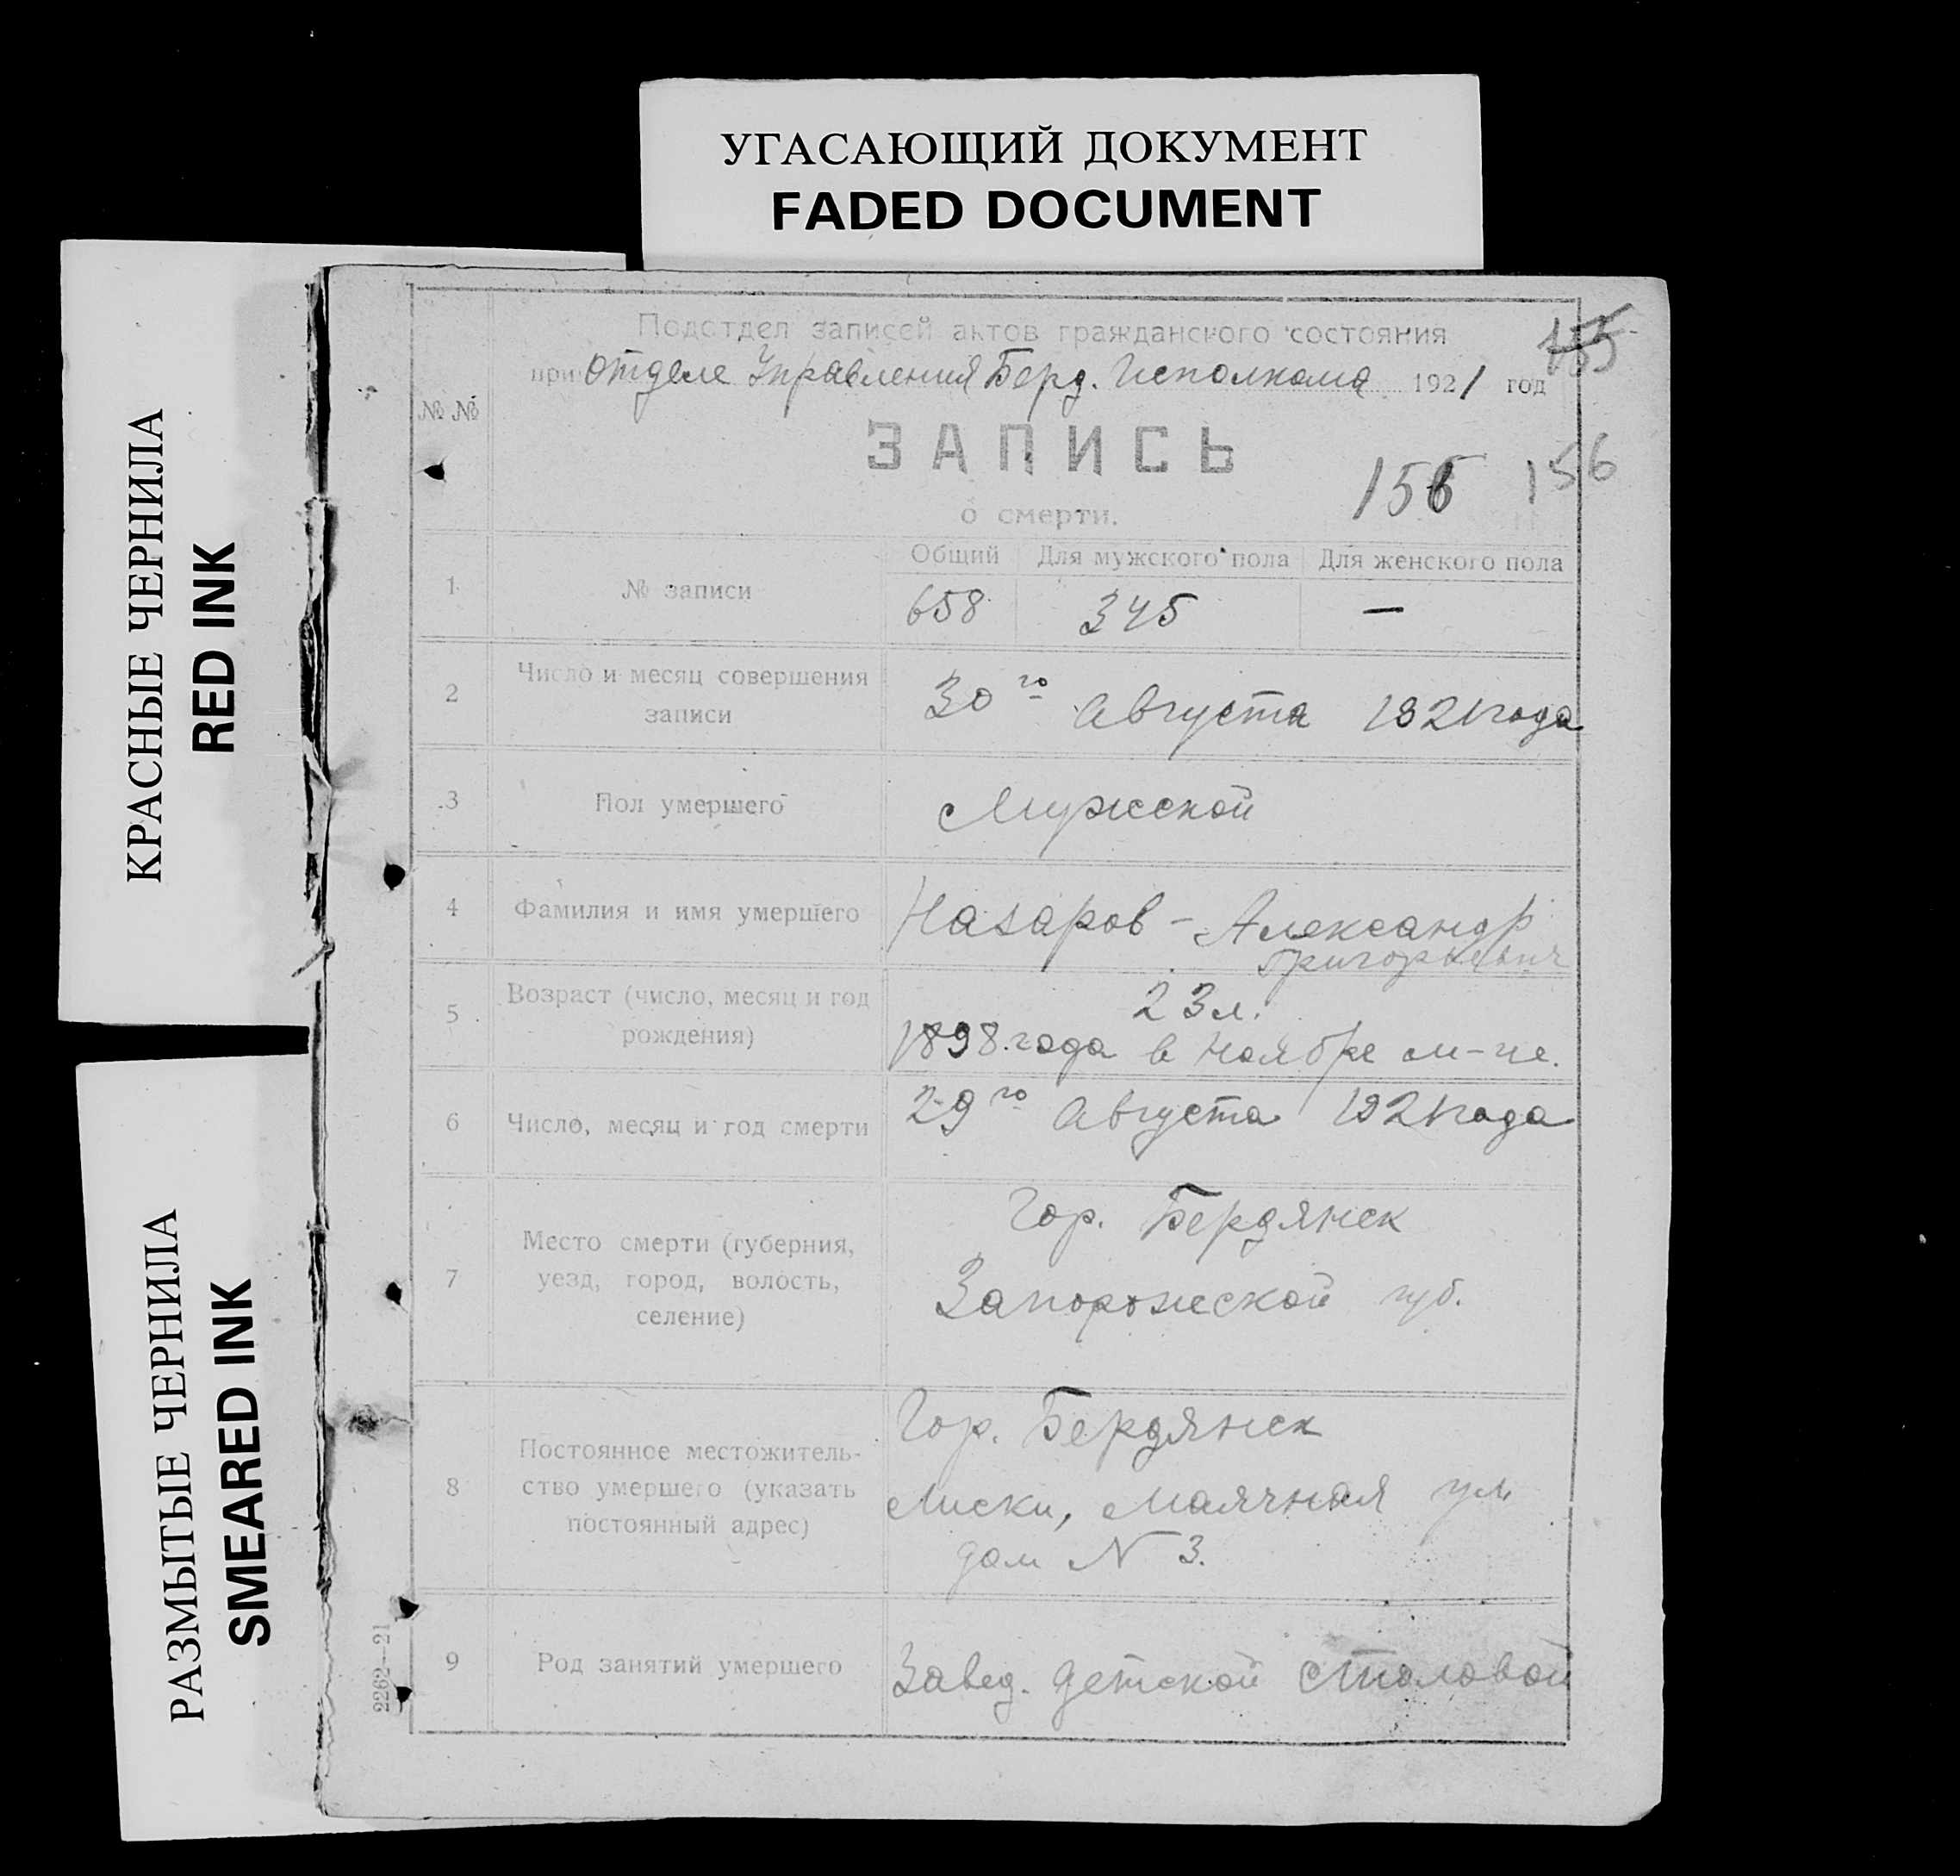 УГАСАЮЩИЙ ДОКУМЕНТ
FADED DOCUMENT
КРАСНЫЕ ЧЕРНИЛА
RED INK
РАЗМЫТЫЕ ЧЕРНИЛА
SMEARED INK
Подотдел записей актов гражданского состояния
155
при Отделе Управления Берд. Исполкома 1921 год
№ №
ЗАПИСЬ
156 156
о смерти.
Общий Для мужского пола Для женского пола
1 № записи 658 345 —
2 Число и месяц совершения записи
30го Августа 1921 года
3 Пол умершего Мужской
4 Фамилия и имя умершего Назаров - Александр
Григорьевич
5 Возраст (число, месяц и год рождения)
23 л.
1898 года в Ноябре м-це.
6 Число, месяц и год смерти 29го Августа 1921 года
7 Место смерти (губерния,
уезд, город, волость,
селение)
Гор. Бердянск
Запорожской губ.
8 Постоянное местожитель-
ство умершего (указать
постоянный адрес)
Гор. Бердянск
Лиски, Маячная ул
дом N 3.
9 Род занятий умершего Завед. детской столовой
2262—21